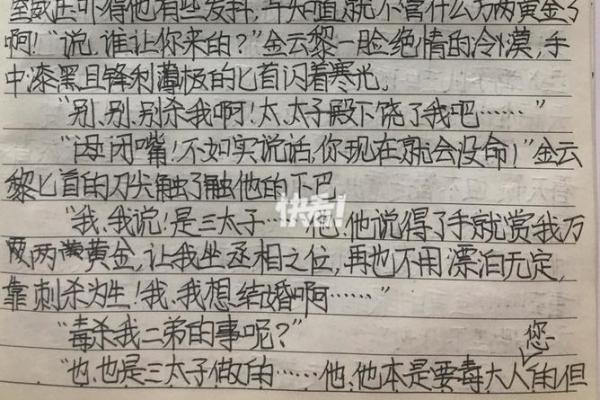 室威压吓得他有些发抖,早知道就不管什么万两黄金了
啊!“说,谁让你来的?”金云黎一脸绝情的冷漠,手
中漆黑且锋利薄极的匕首闪着寒光。
“别、别、别杀我啊!太、太子殿下饶了我吧……”
“闭嘴!不如实说话,你现在就会没命!”金云
黎匕首的刀尖触了触他的下巴
“我、我说!是三太子……他、他说得了手就赏我万
两黄金,让我坐丞相之位,再也不用漂泊无定,
靠刺杀为生!我、我想结婚啊……”
“毒杀我二弟的事呢?”
“也、也是三太子做的……他、他本是要毒大人您的但
快看!